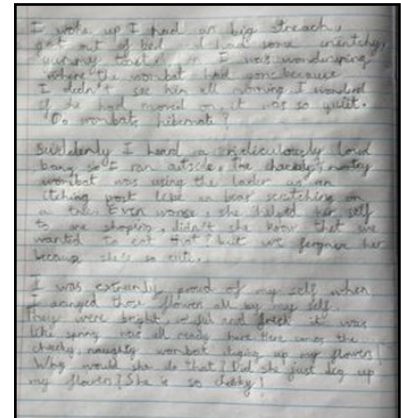 I woke up I had an big streach,
got out of bed I had some crunchy,
yummy toast. I was wondering
where the wombat had gone because
I didn't see him all morning. I wondered
if she had moved on, it was so quiet.
Do wombats hibernate?
Suddenly I heard a rediculously loud
bang so I ran outside. The naughty
wombat was using the lader as an
itching post like an bear scratching on
a tree. Even worse, she helped her self
to are shoping, didn't she know that we
wanted to eat that? but we forgive her
becaus she's so cute.
I was extremly proud of my self when
I aranged those flowers all by my self.
They were bright, and fresh it was
like spring was all ready here then comes the
cheeky, naughty wombat diging up my flowers!
Why would she do that? Did she just dig up
my flowers? She is so cheeky!